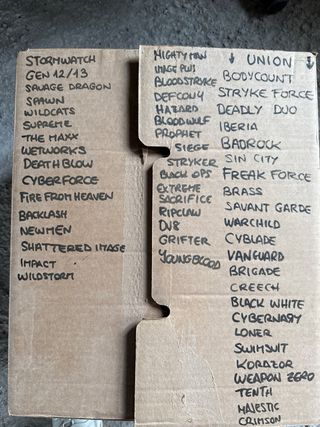 STORMWATCH
GEN 12/13
SAVAGE DRAGON
SPAWN
WILDCATS
SUPREME
THE MAXX
WETWORKS
DEATHBLOW
CYBERFORCE
FIRE FROM HEAVEN
BACKLASH
NEWMEN
SHATTERED IMAGE
IMPACT
WILDSTORM
MIGHTY MAN
IMAGE PLUS
BLOODSTRYKE
DEFCON4
HAZARD
BLOODWULF
PROPHET
SIEGE
STRYKER
BLACK OPS
EXTREME
SACRIFICE
RIPCLAW
DV8
GRIFTER
YOUNGBLOOD
↓ UNION ↓
BODYCOUNT
STRYKE FORCE
DEADLY DUO
IBERIA
BADROCK
SIN CITY
FREAK FORCE
BRASS
SAVANT GARDE
WARCHILD
CYBLADE
VANGUARD
BRIGADE
CREECH
BLACK WHITE
CYBERNARY
LONER
SWIMSUIT
KORAZOR
WEAPON ZERO
TENTH
MAJESTIC
CRIMSON